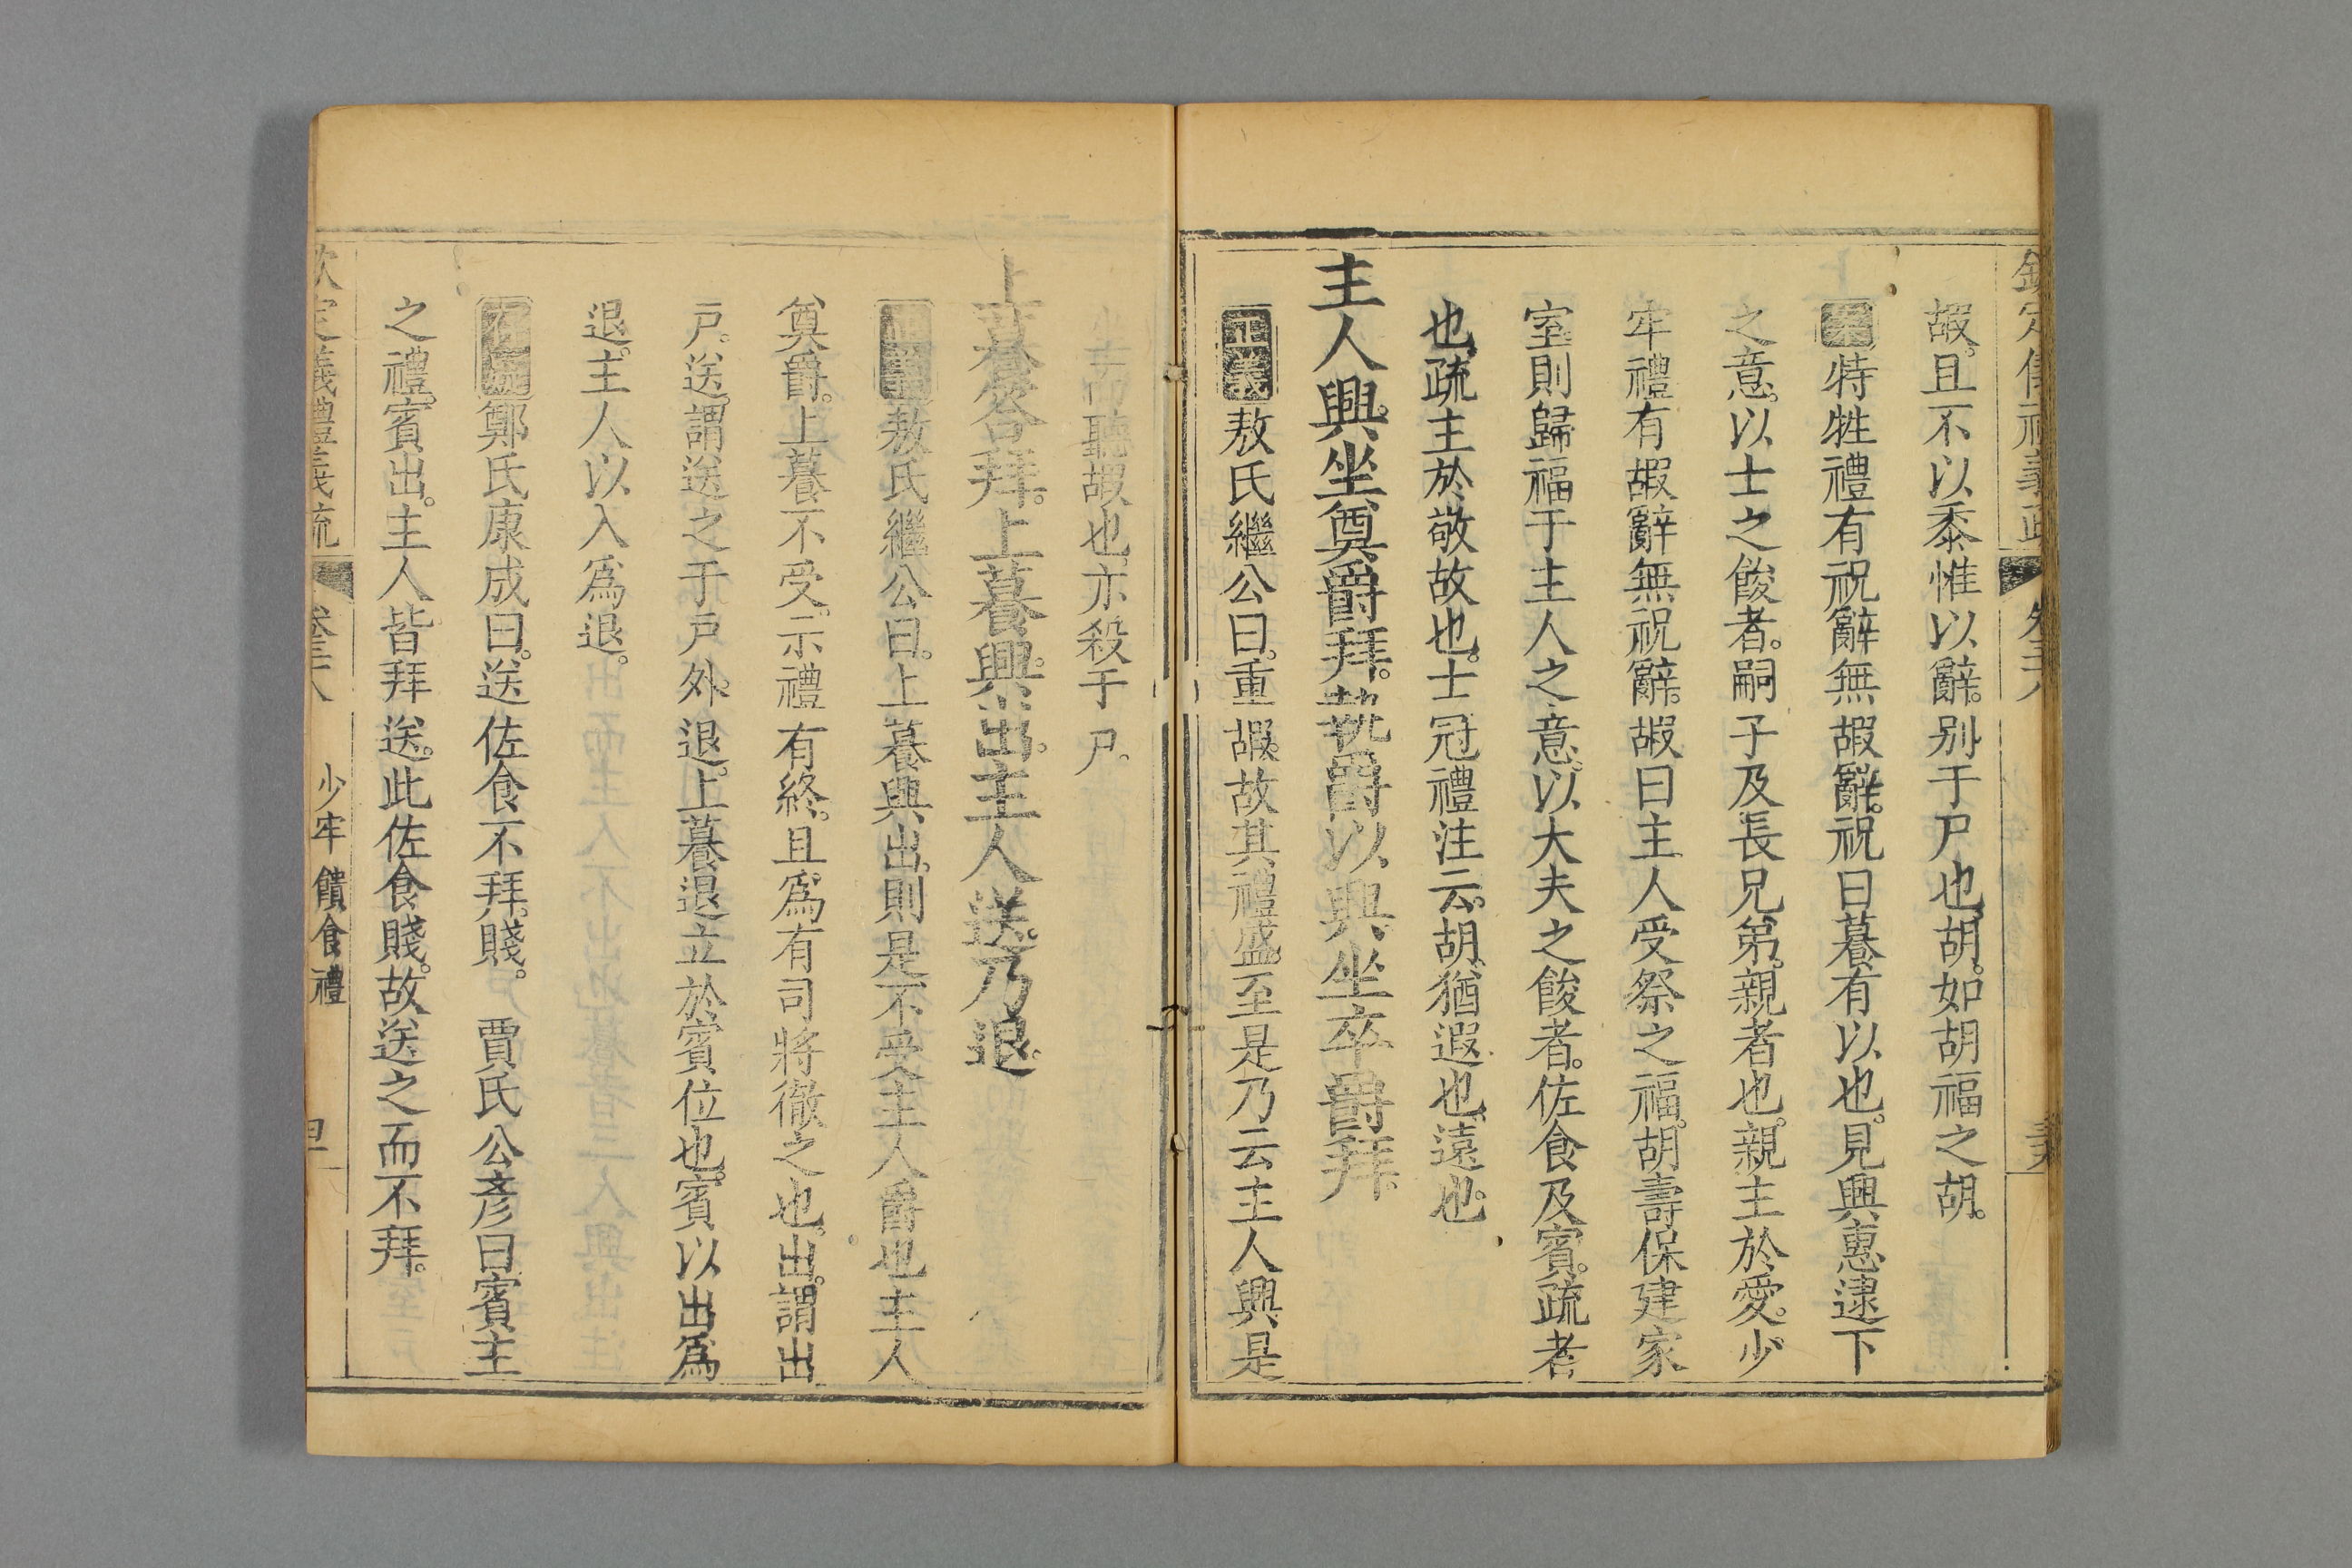 嘏。且不以黍惟以辭。别于尸也。胡。如胡福之胡。
案特牲禮有祝辭無嘏辭。祝曰䭲有以也。見興惠逮下
之意。以士之餕者。嗣子及長兄弟。親者也。親主於愛。少
牢禮有嘏辭無祝辭。嘏曰主人受祭之福。胡壽保建家
室則歸福于主人之意。以大夫之餕者。佐食及賓。疏者
也疏主於敬故也。士冠禮注云。胡猶遐也。遠也。
主人興。坐奠爵拜。執爵以興坐卒爵拜。
正義敖氏繼公曰。重嘏。故其禮盛。至是乃云主人興是
聽嘏也。亦殺于尸。
上䭲答拜。上䭲興。出。主人送。乃退。
正義敖氏繼公曰。上䭲興出。則是不受主人爵也主人
奠爵。上䭲不受。示禮有終。且爲有司將徹之也。出。謂出
戸。送。謂送之于戸外。退。上䭲退立於賓位也。賓以出爲
退。主人以入爲退。
存疑鄭氏康成曰。送佐食不拜。賤。　賈氏公彥曰賓主
之禮。賓出。主人皆拜送。此佐食賤。故送之而不拜。
欽定義禮義疏　卷三十八　少牢饋食禮